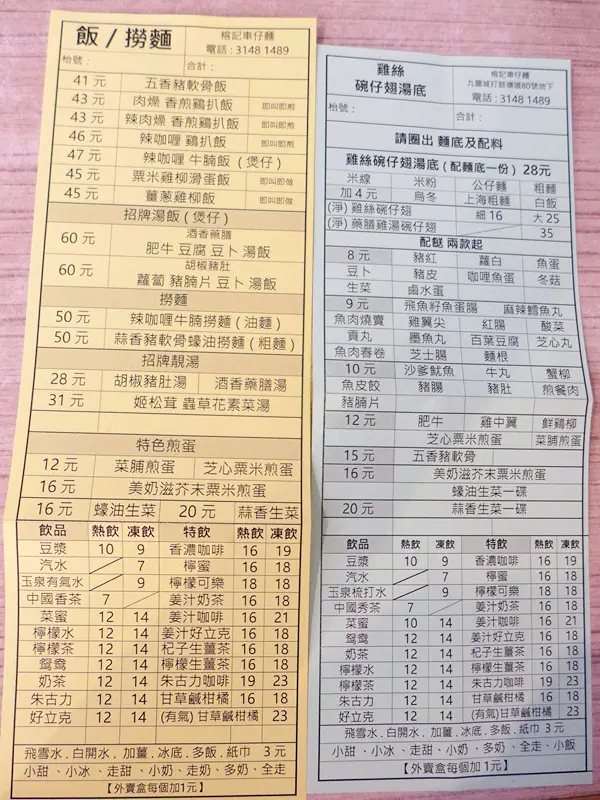 飯 / 撈麵
榕記車仔麵
電話 : 3148 1489
枱號 :
合計 :
41 元 五香豬軟骨飯
43 元 肉燥 香煎鷄扒飯 即叫即煎
43 元 辣肉燥 香煎鷄扒飯 即叫即煎
46 元 辣咖喱 鷄扒飯 即叫即煎
47 元 辣咖喱 牛腩飯 ( 煲仔 )
45 元 粟米雞柳滑蛋飯 即叫即做
45 元 薑葱雞柳飯 即叫即做
招牌湯飯 ( 煲仔 )
60 元 酒香藥膳
肥牛 豆腐 豆卜 湯飯
60 元 胡椒豬肚
蘿蔔 豬腩片 豆卜 湯飯
撈麵
50 元 辣咖喱牛腩撈麵 ( 油麵 )
50 元 蒜香豬軟骨蠔油撈麵 ( 粗麵 )
招牌靚湯
28 元 胡椒豬肚湯 酒香藥膳湯
31 元 姬松茸 蟲草花素菜湯
特色煎蛋
12 元 菜脯煎蛋 芝心粟米煎蛋
16 元 美奶滋芥末粟米煎蛋
16 元 蠔油生菜 20 元 蒜香生菜
飲品 熱飲 凍飲 特飲 熱飲 凍飲
豆漿 10 9 香濃咖啡 16 19
汽水 7 檸蜜 16 18
玉泉有氣水 9 檸檬可樂 18 18
中國香茶 7 姜汁奶茶 16 18
菜蜜 12 14 姜汁咖啡 16 21
檸檬水 12 14 姜汁好立克 16 18
檸檬茶 12 14 杞子生薑茶 16 18
鴛鴦 12 14 檸檬生薑茶 16 18
奶茶 12 14 朱古力咖啡 19 23
朱古力 12 14 甘草鹹柑橘 16 18
好立克 12 14 (有氣) 甘草鹹柑橘 23
飛雪水 . 白開水 . 加薑 . 冰底 . 多飯 . 紙巾 3 元
小甜 . 小冰 . 走甜 . 小奶 . 走奶 . 多奶 . 全走
【外賣盒每個加1元】
雞絲
碗仔翅湯底
榕記車仔麵
九龍城打鼓嶺道80號地下
電話 : 3148 1489
枱號 :
合計 :
請圈出 麵底及配料
雞絲碗仔翅湯底 ( 配麵底一份 ) 28元
米線 米粉 公仔麵 粗麵
加 4 元 烏冬 上海粗麵 白飯
(淨) 雞絲碗仔翅 細 16 大 25
(淨) 藥膳雞湯碗仔翅 35
配餸 兩款起
8 元 豬紅 蘿白 魚蛋
豆卜 豬皮 咖喱魚蛋 冬菇
生菜 鹵水蛋
9 元 飛魚籽魚蛋腸 麻辣鱈魚丸
魚肉燒賣 雞翼尖 紅腸 酸菜
貢丸 墨魚丸 百葉豆腐 芝心丸
魚肉春卷 芝士腸 麵根
10 元 沙爹魷魚 牛丸 蟹柳
魚皮餃 豬腸 豬肚 煎餐肉
豬腩片
12 元 肥牛 雞中翼 鮮鷄柳
芝心粟米煎蛋 菜脯煎蛋
15 元 五香豬軟骨
16 元 美奶滋芥末粟米煎蛋
蠔油生菜一碟
20 元 蒜香生菜一碟
飲品 熱飲 凍飲 特飲 熱飲 凍飲
豆漿 10 9 香濃咖啡 16 19
汽水 7 檸蜜 16 18
玉泉梳打水 9 檸檬可樂 18 18
中國秀茶 7 姜汁奶茶 16 18
菜蜜 10 14 姜汁咖啡 16 21
鴛鴦 12 14 姜汁好立克 16 18
奶茶 12 14 杞子生薑茶 16 18
檸檬水 12 14 檸檬生薑茶 16 18
檸檬茶 12 14 朱古力咖啡 19 23
朱古力 12 14 甘草鹹柑橘 16 18
好立克 12 14 (有氣)甘草鹹柑橘 23
飛雪水 . 白開水 . 加薑 . 冰底 . 多飯 . 紙巾 3 元
小甜 . 小冰 . 走甜 . 小奶 . 多奶 . 全走 . 小飯
【外賣盒每個加1元】